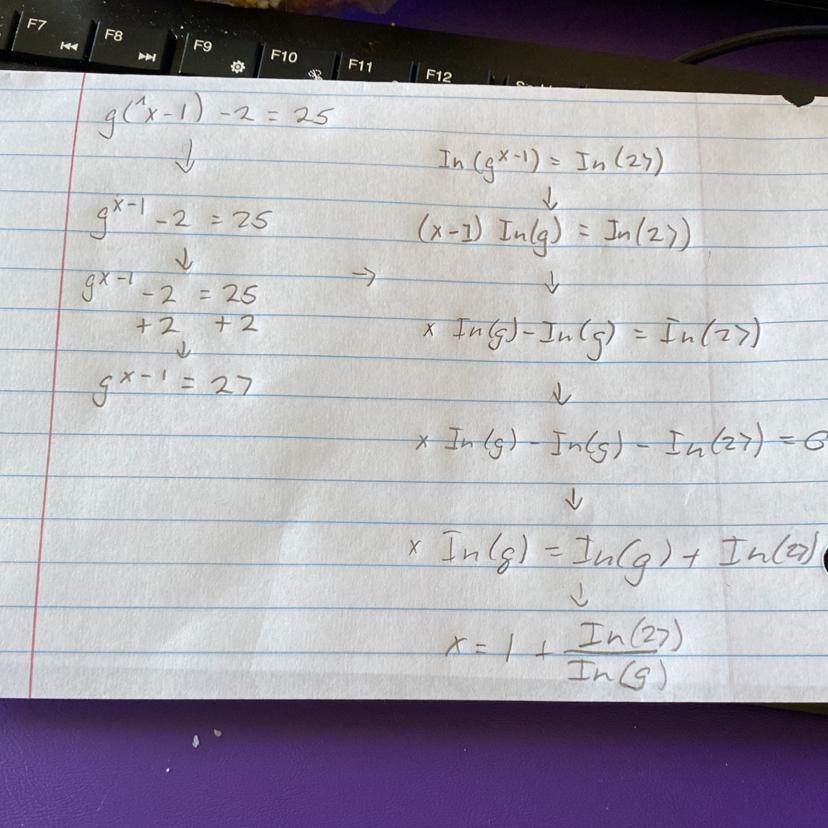 F7
F8
F9
F10
F11
F12
g(^x-1) -2 = 25
↓
g^x-1 -2 = 25
↓
g^x-1 -2 = 25
+2 +2
↓
g^x-1 = 27
→
In(g^x-1) = In(27)
↓
(x-1) In(g) = In(27)
↓
x In(g) - In(g) = In(27)
↓
x In(g) - In(g) - In(27) = 0
↓
x In(g) = In(g) + In(27)
↓
x = 1 + In(27)/In(g)